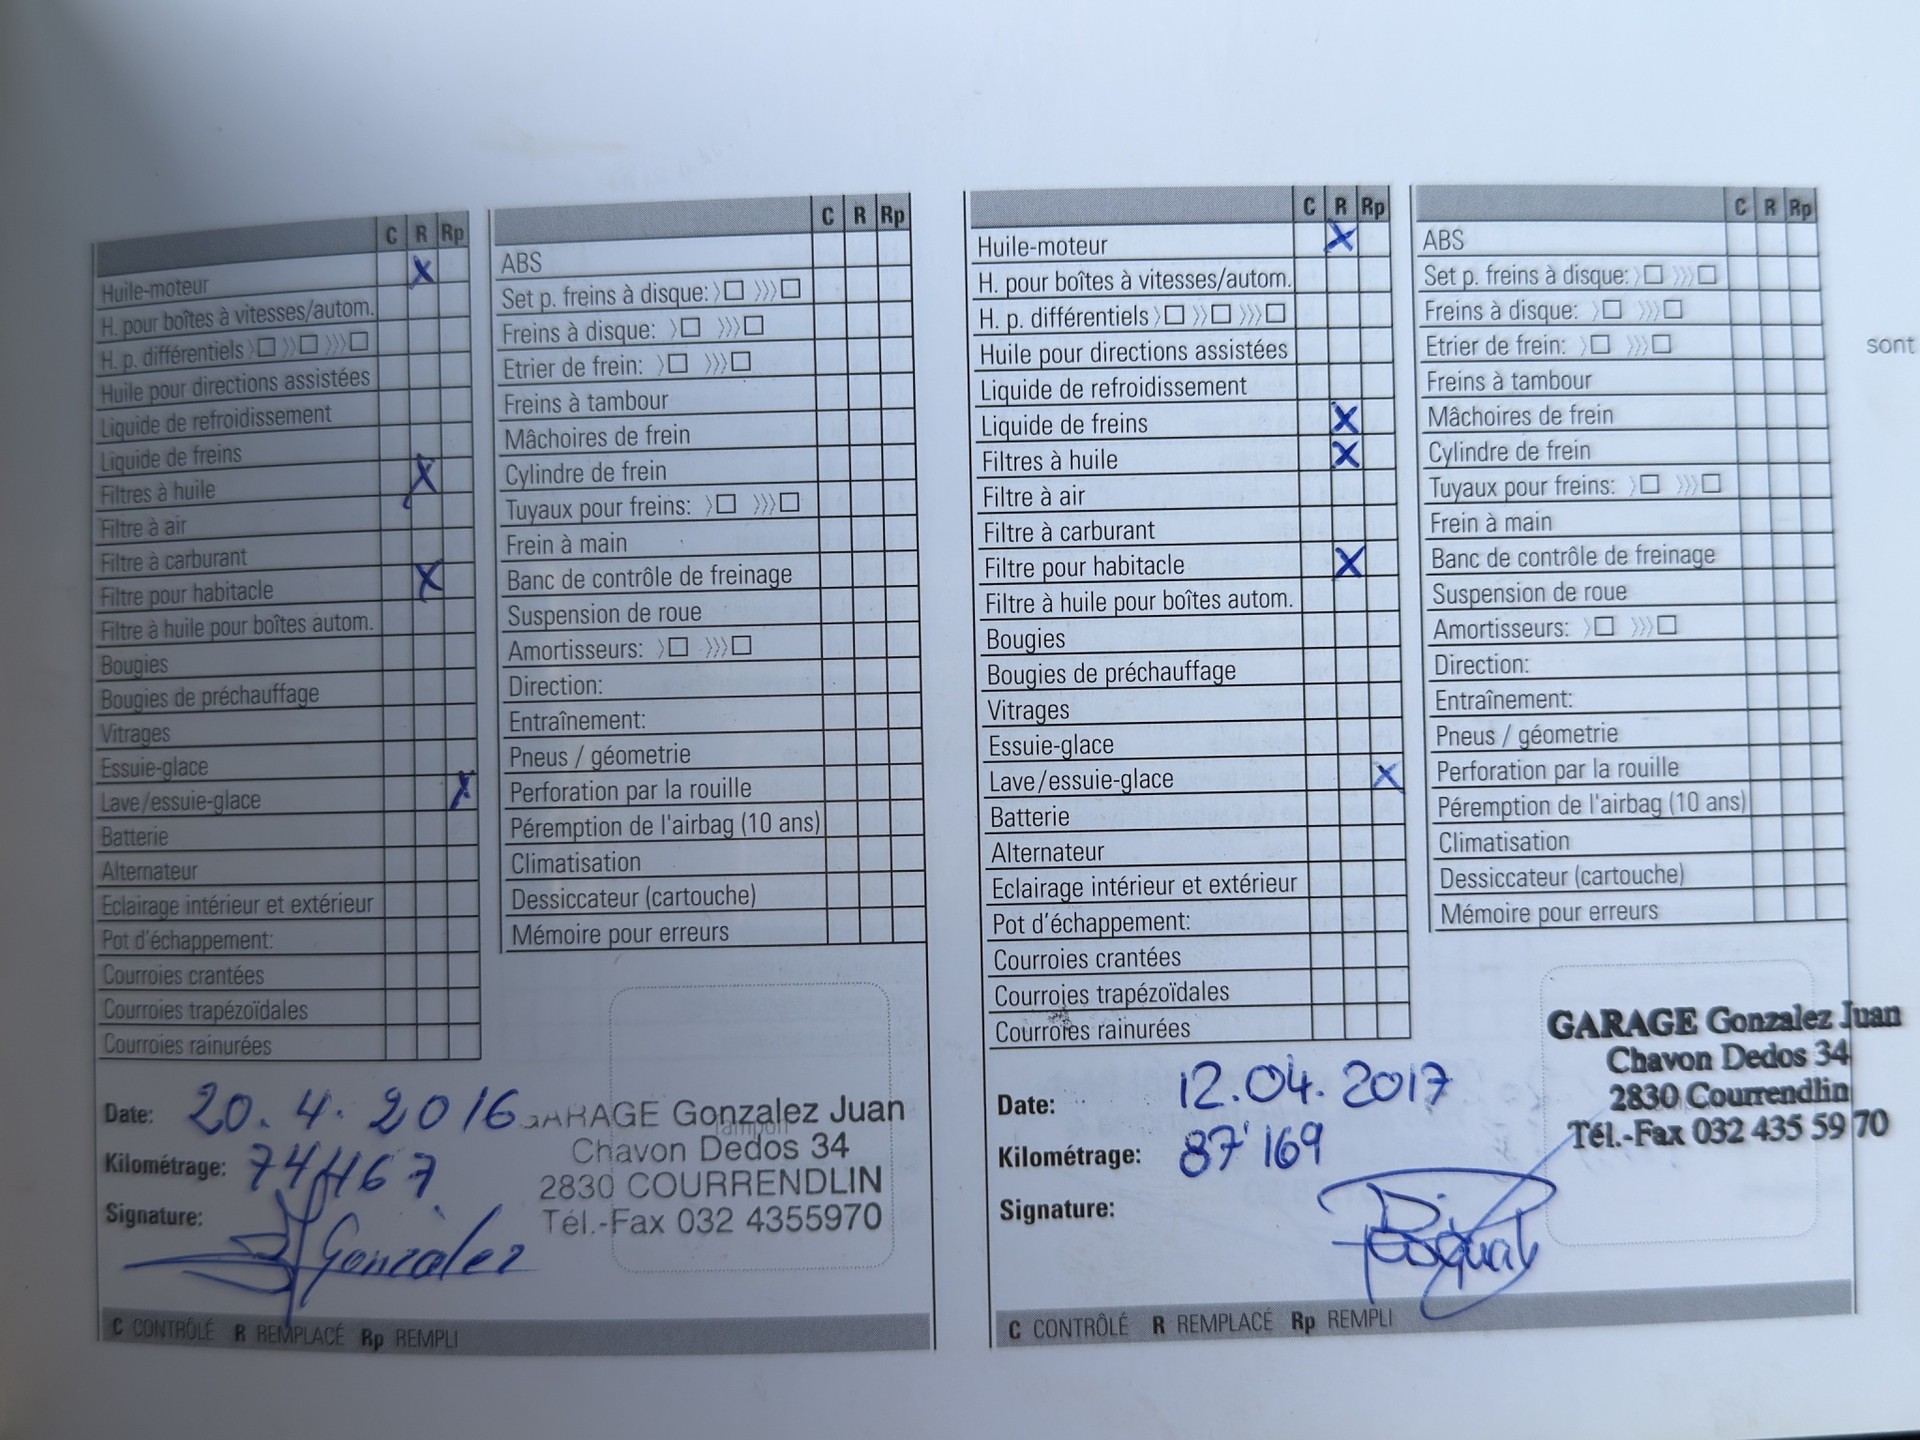 C R Rp
Huile-moteur X
H. pour boîtes à vitesses/autom.
H. p. différentiels 〉□ 〉〉□ 〉〉〉□
Huile pour directions assistées
Liquide de refroidissement
Liquide de freins
Filtres à huile X
Filtre à air
Filtre à carburant
Filtre pour habitacle X
Filtre à huile pour boîtes autom.
Bougies
Bougies de préchauffage
Vitrages
Essuie-glace
Lave/essuie-glace X
Batterie
Alternateur
Eclairage intérieur et extérieur
Pot d'échappement:
Courroies crantées
Courroies trapézoïdales
Courroies rainurées
C R Rp
ABS
Set p. freins à disque: 〉□ 〉〉〉□
Freins à disque: 〉□ 〉〉〉□
Etrier de frein: 〉□ 〉〉〉□
Freins à tambour
Mâchoires de frein
Cylindre de frein
Tuyaux pour freins: 〉□ 〉〉〉□
Frein à main
Banc de contrôle de freinage
Suspension de roue
Amortisseurs: 〉□ 〉〉〉□
Direction:
Entraînement:
Pneus / géometrie
Perforation par la rouille
Péremption de l'airbag (10 ans)
Climatisation
Dessiccateur (cartouche)
Mémoire pour erreurs
Date: 20.4.2016
Kilométrage: 74'467
Signature: Gonzalez
Tampon
GARAGE Gonzalez Juan
Chavon Dedos 34
2830 COURRENDLIN
Tél.-Fax 032 4355970
C CONTRÔLÉ R REMPLACÉ Rp REMPLI
C R Rp
Huile-moteur X
H. pour boîtes à vitesses/autom.
H. p. différentiels 〉□ 〉〉□ 〉〉〉□
Huile pour directions assistées
Liquide de refroidissement
Liquide de freins X
Filtres à huile X
Filtre à air
Filtre à carburant
Filtre pour habitacle X
Filtre à huile pour boîtes autom.
Bougies
Bougies de préchauffage
Vitrages
Essuie-glace
Lave/essuie-glace X
Batterie
Alternateur
Eclairage intérieur et extérieur
Pot d'échappement:
Courroies crantées
Courroies trapézoïdales
Courroies rainurées
C R Rp
ABS
Set p. freins à disque: 〉□ 〉〉〉□
Freins à disque: 〉□ 〉〉〉□
Etrier de frein: 〉□ 〉〉〉□
Freins à tambour
Mâchoires de frein
Cylindre de frein
Tuyaux pour freins: 〉□ 〉〉〉□
Frein à main
Banc de contrôle de freinage
Suspension de roue
Amortisseurs: 〉□ 〉〉〉□
Direction:
Entraînement:
Pneus / géometrie
Perforation par la rouille
Péremption de l'airbag (10 ans)
Climatisation
Dessiccateur (cartouche)
Mémoire pour erreurs
Date: 12.04.2017
Kilométrage: 87'169
Signature:
GARAGE Gonzalez Juan
Chavon Dedos 34
2830 Courrendlin
Tél.-Fax 032 435 59 70
C CONTRÔLÉ R REMPLACÉ Rp REMPLI
sont